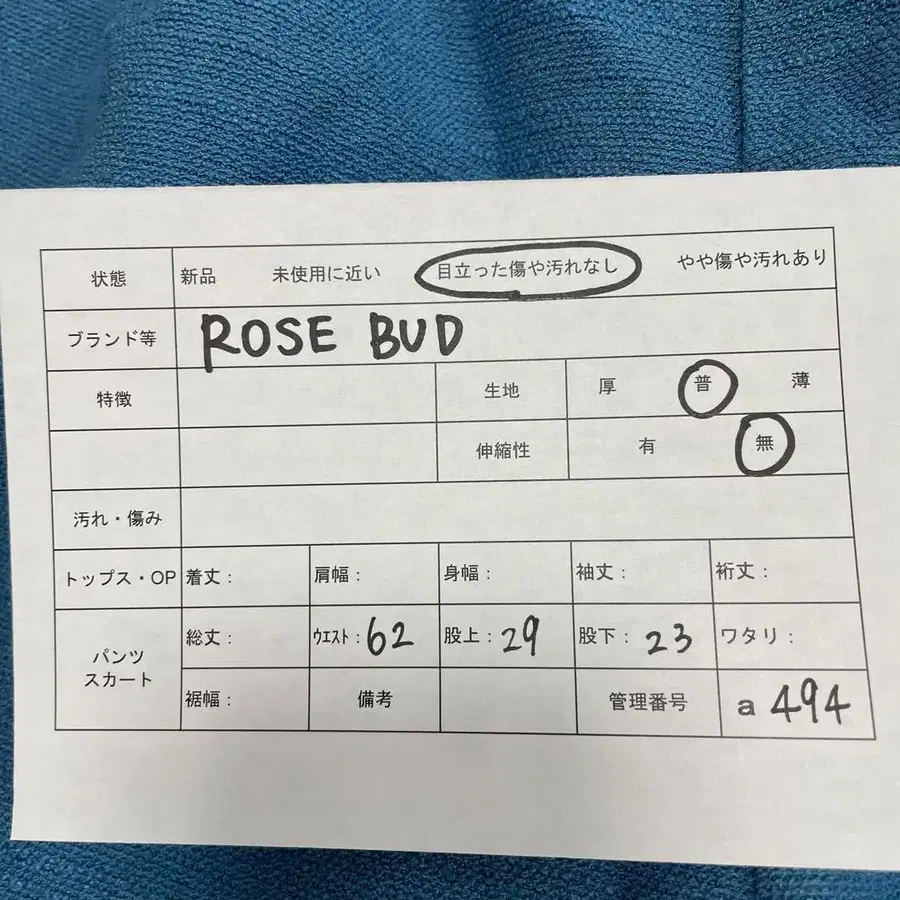 状態 新品 未使用に近い 目立った傷や汚れなし やや傷や汚れあり
ブランド等 ROSE BUD
特徴 生地 厚 普 薄
伸縮性 有 無
汚れ・傷み
トップス・OP 着丈: 肩幅: 身幅: 袖丈: 裄丈:
パンツ スカート 総丈: ウエスト:62 股上:29 股下:23 ワタリ:
裾幅: 備考 管理番号 a 494